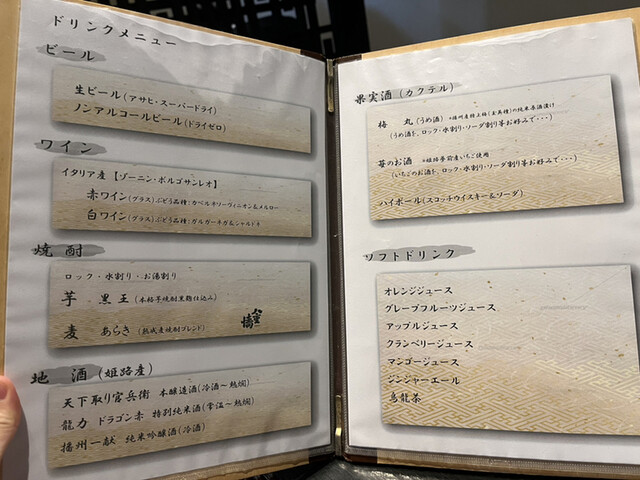 ドリンクメニュー
ビール
生ビール(アサヒ・スーパードライ)
ノンアルコールビール(ドライゼロ)
ワイン
イタリア産【ゾーニン・ボルゴサンレオ】
赤ワイン(グラス)ぶどう品種:カベルネソーヴィニオン&メルロー
白ワイン(グラス)ぶどう品種:ガルガーネガ&シャルドネ
焼酎
ロック・水割り・お湯割り
芋 黒王(本格芋焼酎黒麹仕込み)
麦 あらき(熟成麦焼酎ブレンド)
地 酒(姫路産)
天下取り官兵衛 本醸造酒(冷酒~熱燗)
龍力 ドラゴン赤 特別純米酒(常温~熱燗)
播州一献 純米吟醸酒(冷酒)
果実酒(カクテル)
梅 丸(うめ酒) *播州産極上梅(古城梅)の純米原酒漬け
(うめ酒を、ロック・水割り・ソーダ割り等お好みで・・・)
苺のお酒 *姫路夢前産いちご使用
(いちごのお酒を、ロック・水割り・ソーダ割り等お好みで・・・)
ハイボール(スコッチウイスキー&ソーダ)
ソフトドリンク
オレンジジュース
グレープフルーツジュース
アップルジュース
クランベリージュース
マンゴージュース
ジンジャーエール
烏龍茶